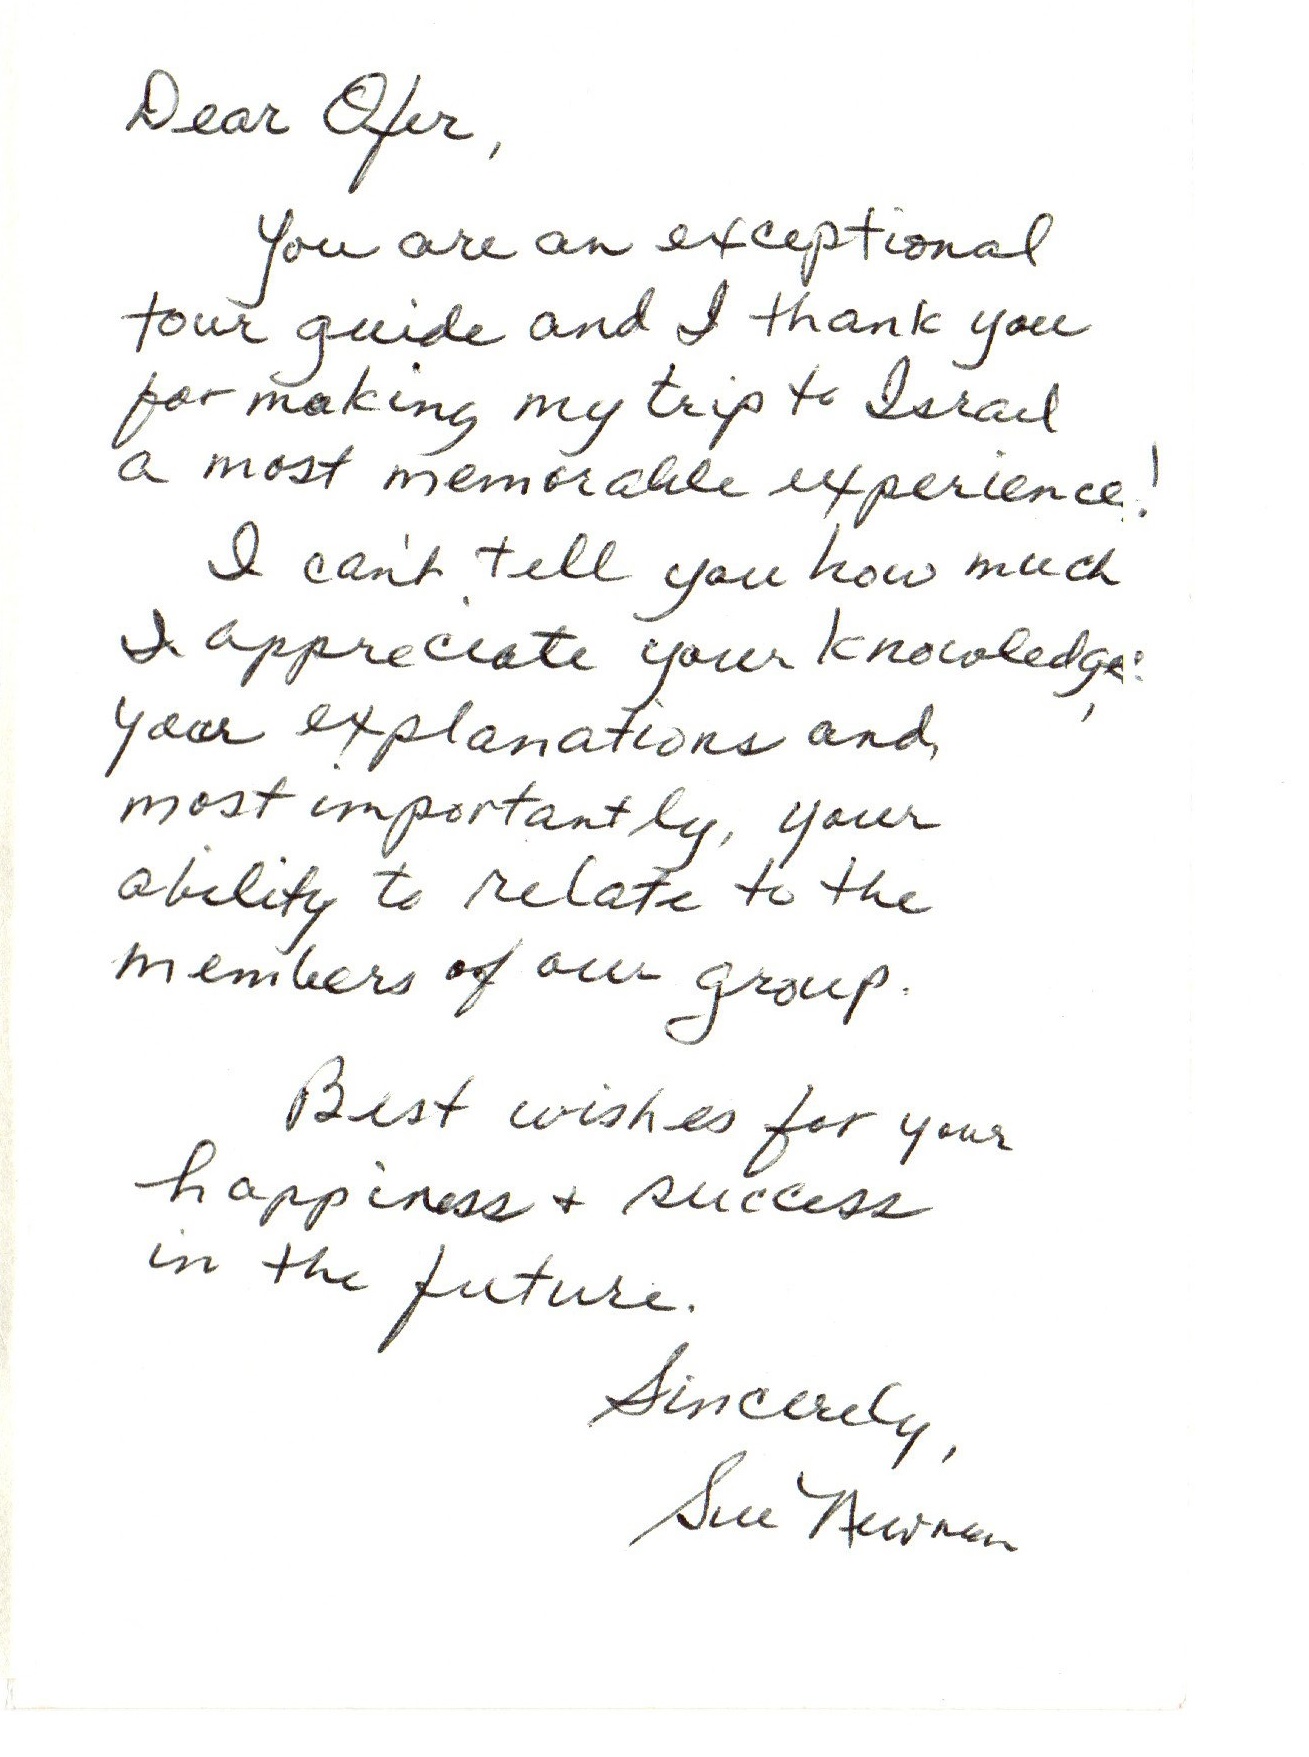 Dear Ofer,
You are an exceptional
tour guide and I thank you
for making my trip to Israel
a most memorable experience!
I can't tell you how much
I appreciate your knowledge,
your explanations and,
most importantly, your
ability to relate to the
members of our group.
Best wishes for your
happiness + success
in the future.
Sincerely,
Sue Newman